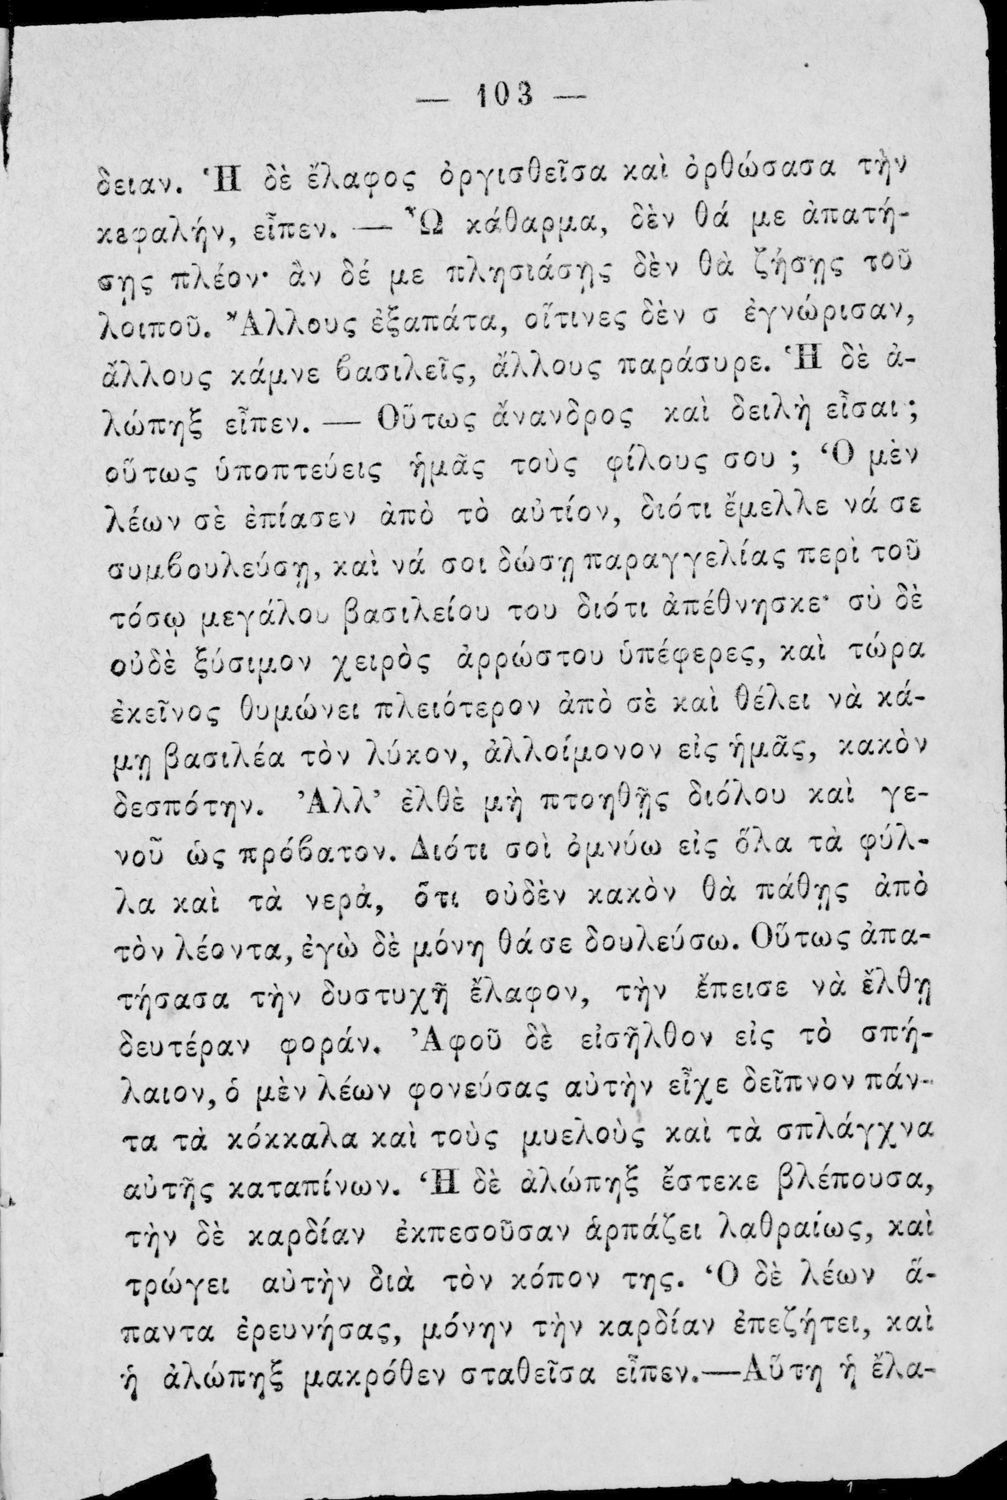 — 103 —
δειαν. Ἡ δὲ ἔλαφος ὀργισθεῖσα καὶ ὀρθώσασα τὴν
κεφαλήν, εἶπεν. — Ὦ κάθαρμα, δὲν θά με ἀπατή-
σῃς πλέον· ἂν δέ με πλησιάσῃς δὲν θὰ ζήσῃς τοῦ
λοιποῦ. Ἄλλους ἐξαπάτα, οἵτινες δὲν σ ἐγνώρισαν,
ἄλλους κάμνε βασιλεῖς, ἄλλους παράσυρε. Ἡ δὲ ἀ-
λώπηξ εἶπεν. — Οὕτως ἄνανδρος καὶ δειλὴ εἶσαι ;
οὕτως ὑποπτεύεις ἡμᾶς τοὺς φίλους σου ; Ὁ μὲν
λέων σὲ ἐπίασεν ἀπὸ τὸ αὐτίον, διότι ἔμελλε νά σε
συμβουλεύσῃ, καὶ νά σοι δώσῃ παραγγελίας περὶ τοῦ
τόσῳ μεγάλου βασιλείου του διότι ἀπέθνησκε· σὺ δὲ
οὐδὲ ξύσιμον χειρὸς ἀρρώστου ὑπέφερες, καὶ τώρα
ἐκεῖνος θυμώνει πλειότερον ἀπὸ σὲ καὶ θέλει νὰ κά-
μῃ βασιλέα τὸν λύκον, ἀλλοίμονον εἰς ἡμᾶς, κακὸν
δεσπότην. Ἀλλ’ ἐλθὲ μὴ πτοηθῇς διόλου καὶ γε-
νοῦ ὡς πρόβατον. Διότι σοὶ ὀμνύω εἰς ὅλα τὰ φύλ-
λα καὶ τὰ νερὰ, ὅτι οὐδὲν κακὸν θὰ πάθῃς ἀπὸ
τὸν λέοντα, ἐγὼ δὲ μόνη θά σε δουλεύσω. Οὕτως ἀπα-
τήσασα τὴν δυστυχῆ ἔλαφον, τὴν ἔπεισε νὰ ἔλθῃ
δευτέραν φοράν. Ἀφοῦ δὲ εἰσῆλθον εἰς τὸ σπή-
λαιον, ὁ μὲν λέων φονεύσας αὐτὴν εἶχε δεῖπνον πάν-
τα τὰ κόκκαλα καὶ τοὺς μυελοὺς καὶ τὰ σπλάγχνα
αὐτῆς καταπίνων. Ἡ δὲ ἀλώπηξ ἔστεκε βλέπουσα,
τὴν δὲ καρδίαν ἐκπεσοῦσαν ἁρπάζει λαθραίως, καὶ
τρώγει αὐτὴν διὰ τὸν κόπον της. Ὁ δὲ λέων ἅ-
παντα ἐρευνήσας, μόνην τὴν καρδίαν ἐπεζήτει, καὶ
ἡ ἀλώπηξ μακρόθεν σταθεῖσα εἶπεν.—Αὕτη ἡ ἔλα-